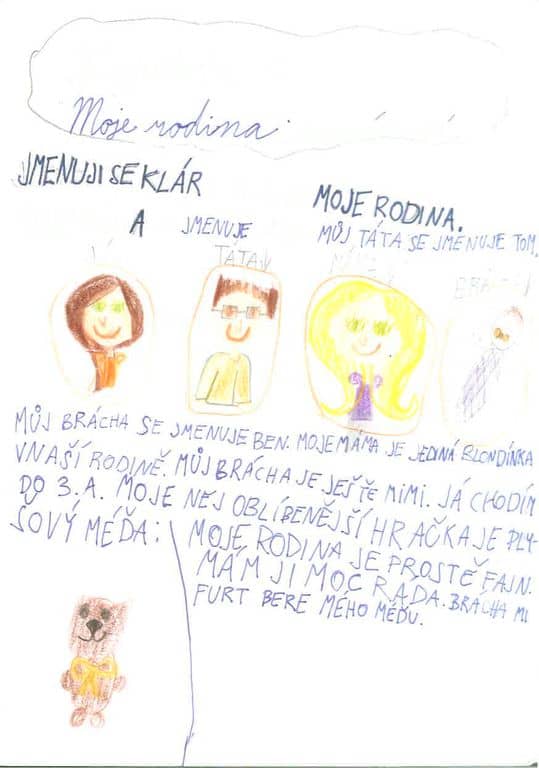 Moje rodina
JMENUJI SE KLÁR
A JMENUJE
MOJE RODINA.
MŮJ TÁTA SE JMENUJE TOM,
JÁ
TÁTA
MÁMA
BRÁCHA
MŮJ BRÁCHA SE JMENUJE BEN. MOJE MÁMA JE JEDINÁ BLONDÍNKA
V NAŠÍ RODINĚ. MŮJ BRÁCHA JE JEŠTĚ MIMI. JÁ CHODÍM
DO 3.A. MOJE NEJ OBLÍBENĚJŠÍ HRAČKA JE PLY-
ŠOVÝ MÉĎA:
MOJE RODINA JE PROSTĚ FAJN.
MÁM JI MOC RÁDA. BRÁCHA MI
FURT BERE MÉHO MÉĎU.